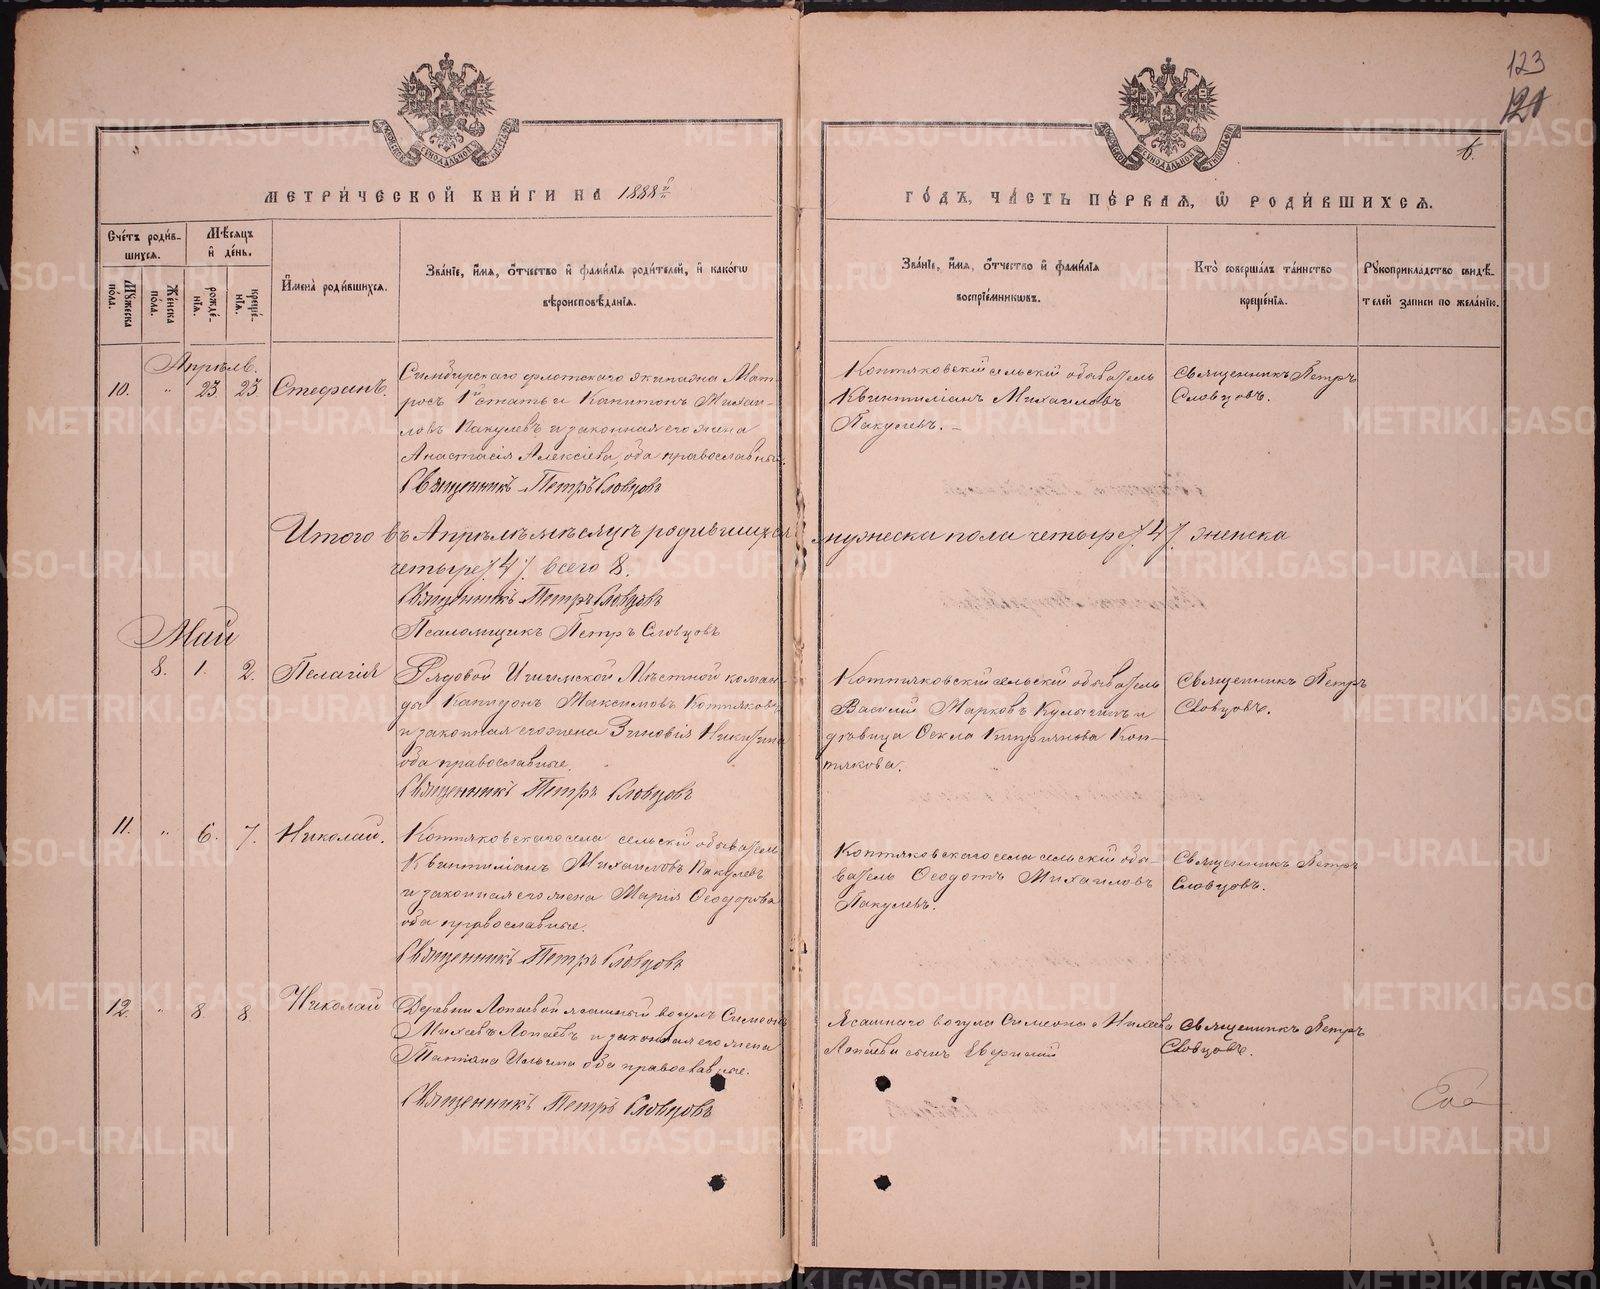 123
121
6.
МОСКОВСКОЙ СѴНОДАЛЬНОЙ ТИПОГРАФІИ
МОСКОВСКОЙ СѴНОДАЛЬНОЙ ТИПОГРАФІИ
МЕТРИ́ЧЕСКОЙ КНИ́ГИ НА 1888й
ГО́ДЪ, ЧА́СТЬ ПЕ́РВАЯ, Ѡ РОДИ́ВШИХСЯ.
Сче́тъ роди́в-
шихся.
Мѣ́сяцъ
и҆ де́нь.
Мꙋ́жеска
по́ла.
Же́нска
по́ла.
рожде́-
нїя.
креще́-
нїя.
И҆мена̀ роди́вшихся.
Зва́нїе, и҆́мя, ѻ҆́тчество и҆ фами́лїя роди́телей, и҆ како́гѡ
вѣроисповѣ́данїя.
Зва́нїе, и҆́мя, ѻ҆́тчество и҆ фами́лїя
воспрїе́мникѡвъ.
Кто̀ соверша́лъ та́инство
креще́нїя.
Рꙋкоприкла́дство свидѣ́-
телей записи по жела́нїю.
Апрѣль.
10. " 23 23 Стефанъ.
Симбирскаго флотскаго экипажа Мат-
росъ 1й статьи Капитонъ Михаи-
ловъ Пакулевъ и законная его жена
Анастасія Алексіева, оба православные.
Священникъ Петръ Словцовъ
Коптяковскій сельскій обыватель
Квинтиліанъ Михаиловъ
Пакулевъ. –
Священникъ Петръ
Словцовъ.
Итого въ Апрѣлѣ мѣсяцѣ родившихся мужеска пола четыре /.4/. женска
четыре /.4/. всего 8.
Священникъ Петръ Словцовъ
Псаломщикъ Петръ Словцовъ
Май
8. 1. 2. Пелагія
Рядовой Мѣстной коман-
ды Максимовъ Коптяковъ
и законная его жена Зиновія Никитина
оба православные.
Священникъ Петръ Словцовъ
Коптяковскій сельскій обыватель
Василій Марковъ и
дѣвица Ѳекла Кипріянова Коп-
тякова.
Священникъ Петръ
Словцовъ.
11. " 6. 7. Николай.
Коптяковскаго села сельскій обыватель
Квинтиліанъ Михаиловъ Пакулевъ
и законная его жена Марія Ѳеодорова
оба православные.
Священникъ Петръ Словцовъ
Коптяковскаго села сельскій обы-
ватель Ѳеодотъ Михаиловъ
Пакулевъ.
Священникъ Петръ
Словцовъ.
12. " 8 8 Николай
Деревни Лопаевой ясашный вогулъ Симеонъ
Михеевъ Лопаевъ и законная его жена
Татіана Ильина оба православные.
Священникъ Петръ Словцовъ
Ясашнаго вогула Симеона Михеева
Лопаева сынъ
Священникъ Петръ
Словцовъ.
METRIKI.GASO-URAL.RU